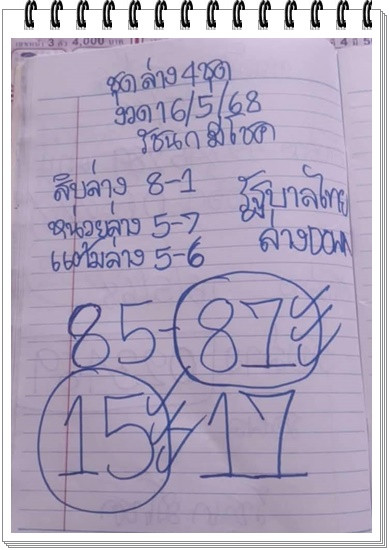 3 ตัว 4,000 บาท
ชุดล่าง 4 ชุด
งวด 16/5/68
รัชนก มีโชค
สิบล่าง 8-1
หน่วยล่าง 5-7
แต้มล่าง 5-6
รัฐบาลไทย
ล่าง DOWN
85-87
15-17